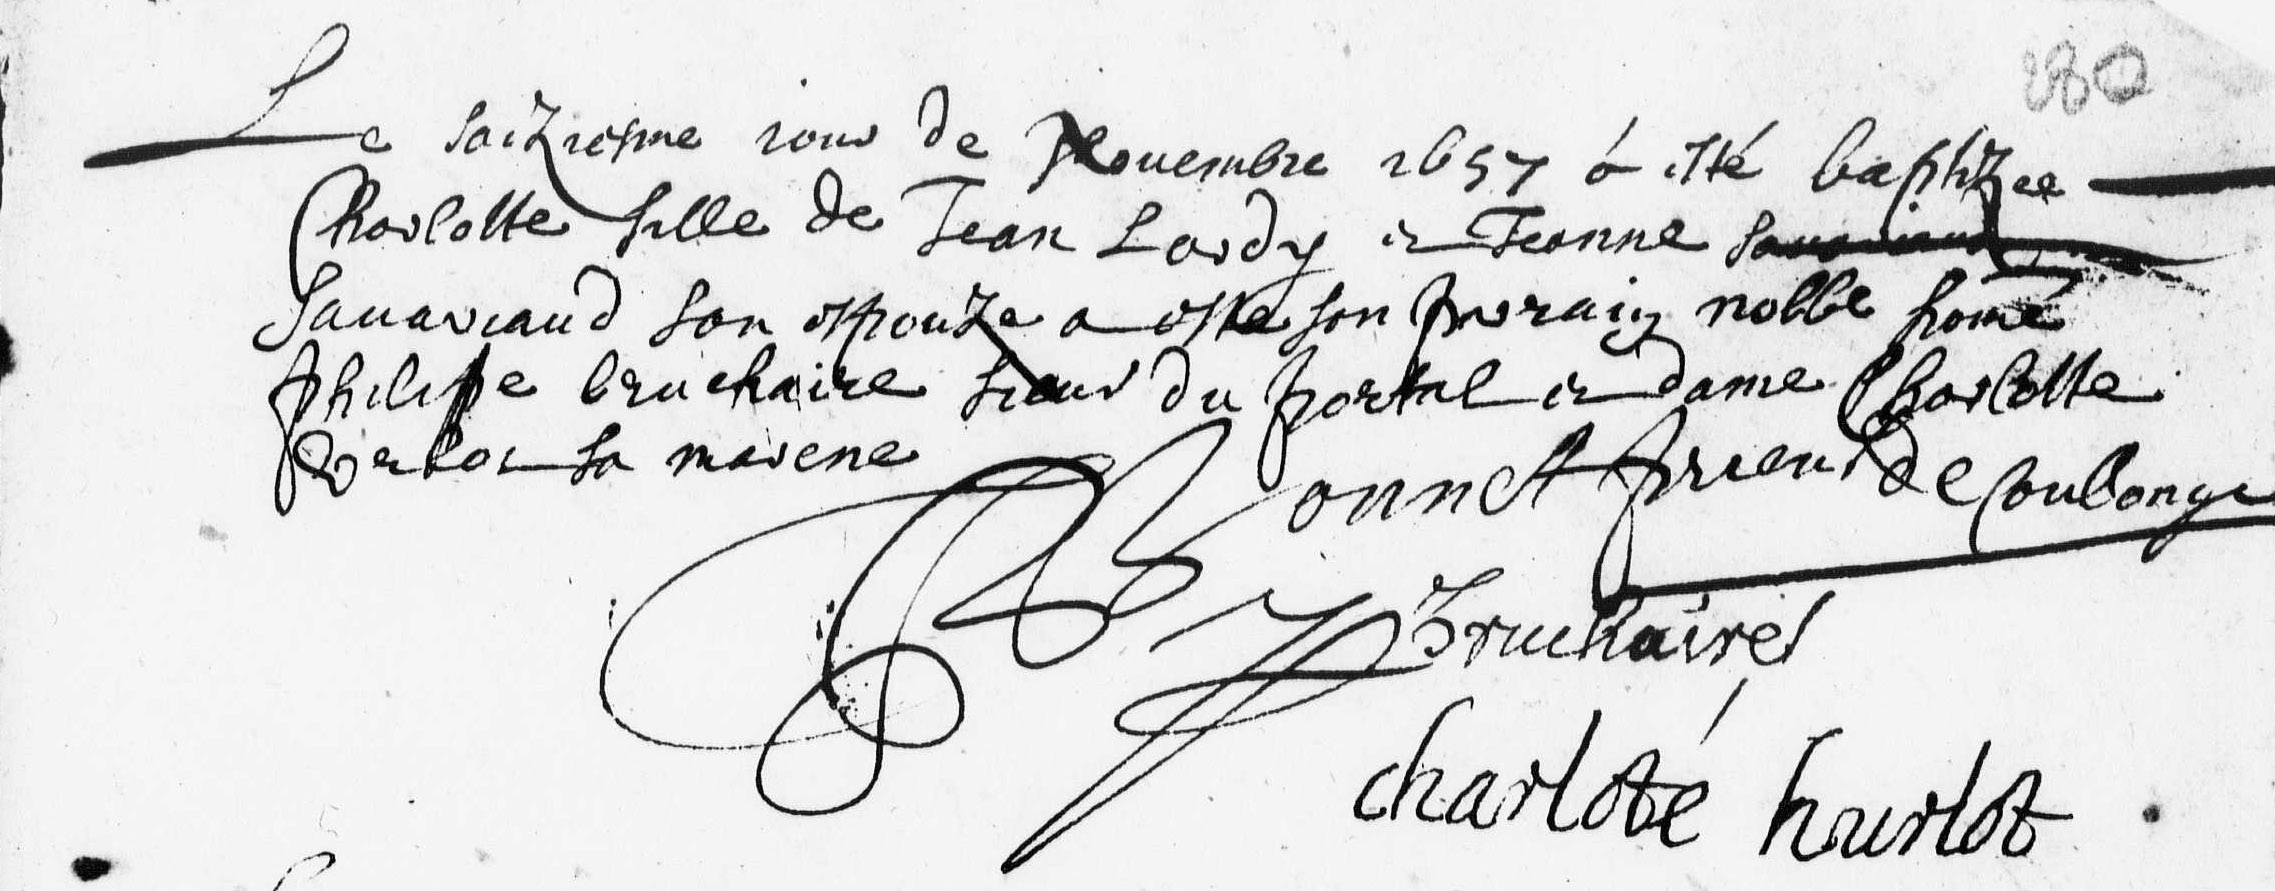 280
Le saiziesme iour de Nouembre 1657 á esté baptizee
Charlotte fille de Jean Lardy et Jeanne
Sauauiaud son espouze a este son parain noble home
philippe bruchaire sieur du portal et dame Charlotte
sa marene
Bonnet prieur de Coulonge
Bruchaire
charloté hurlot